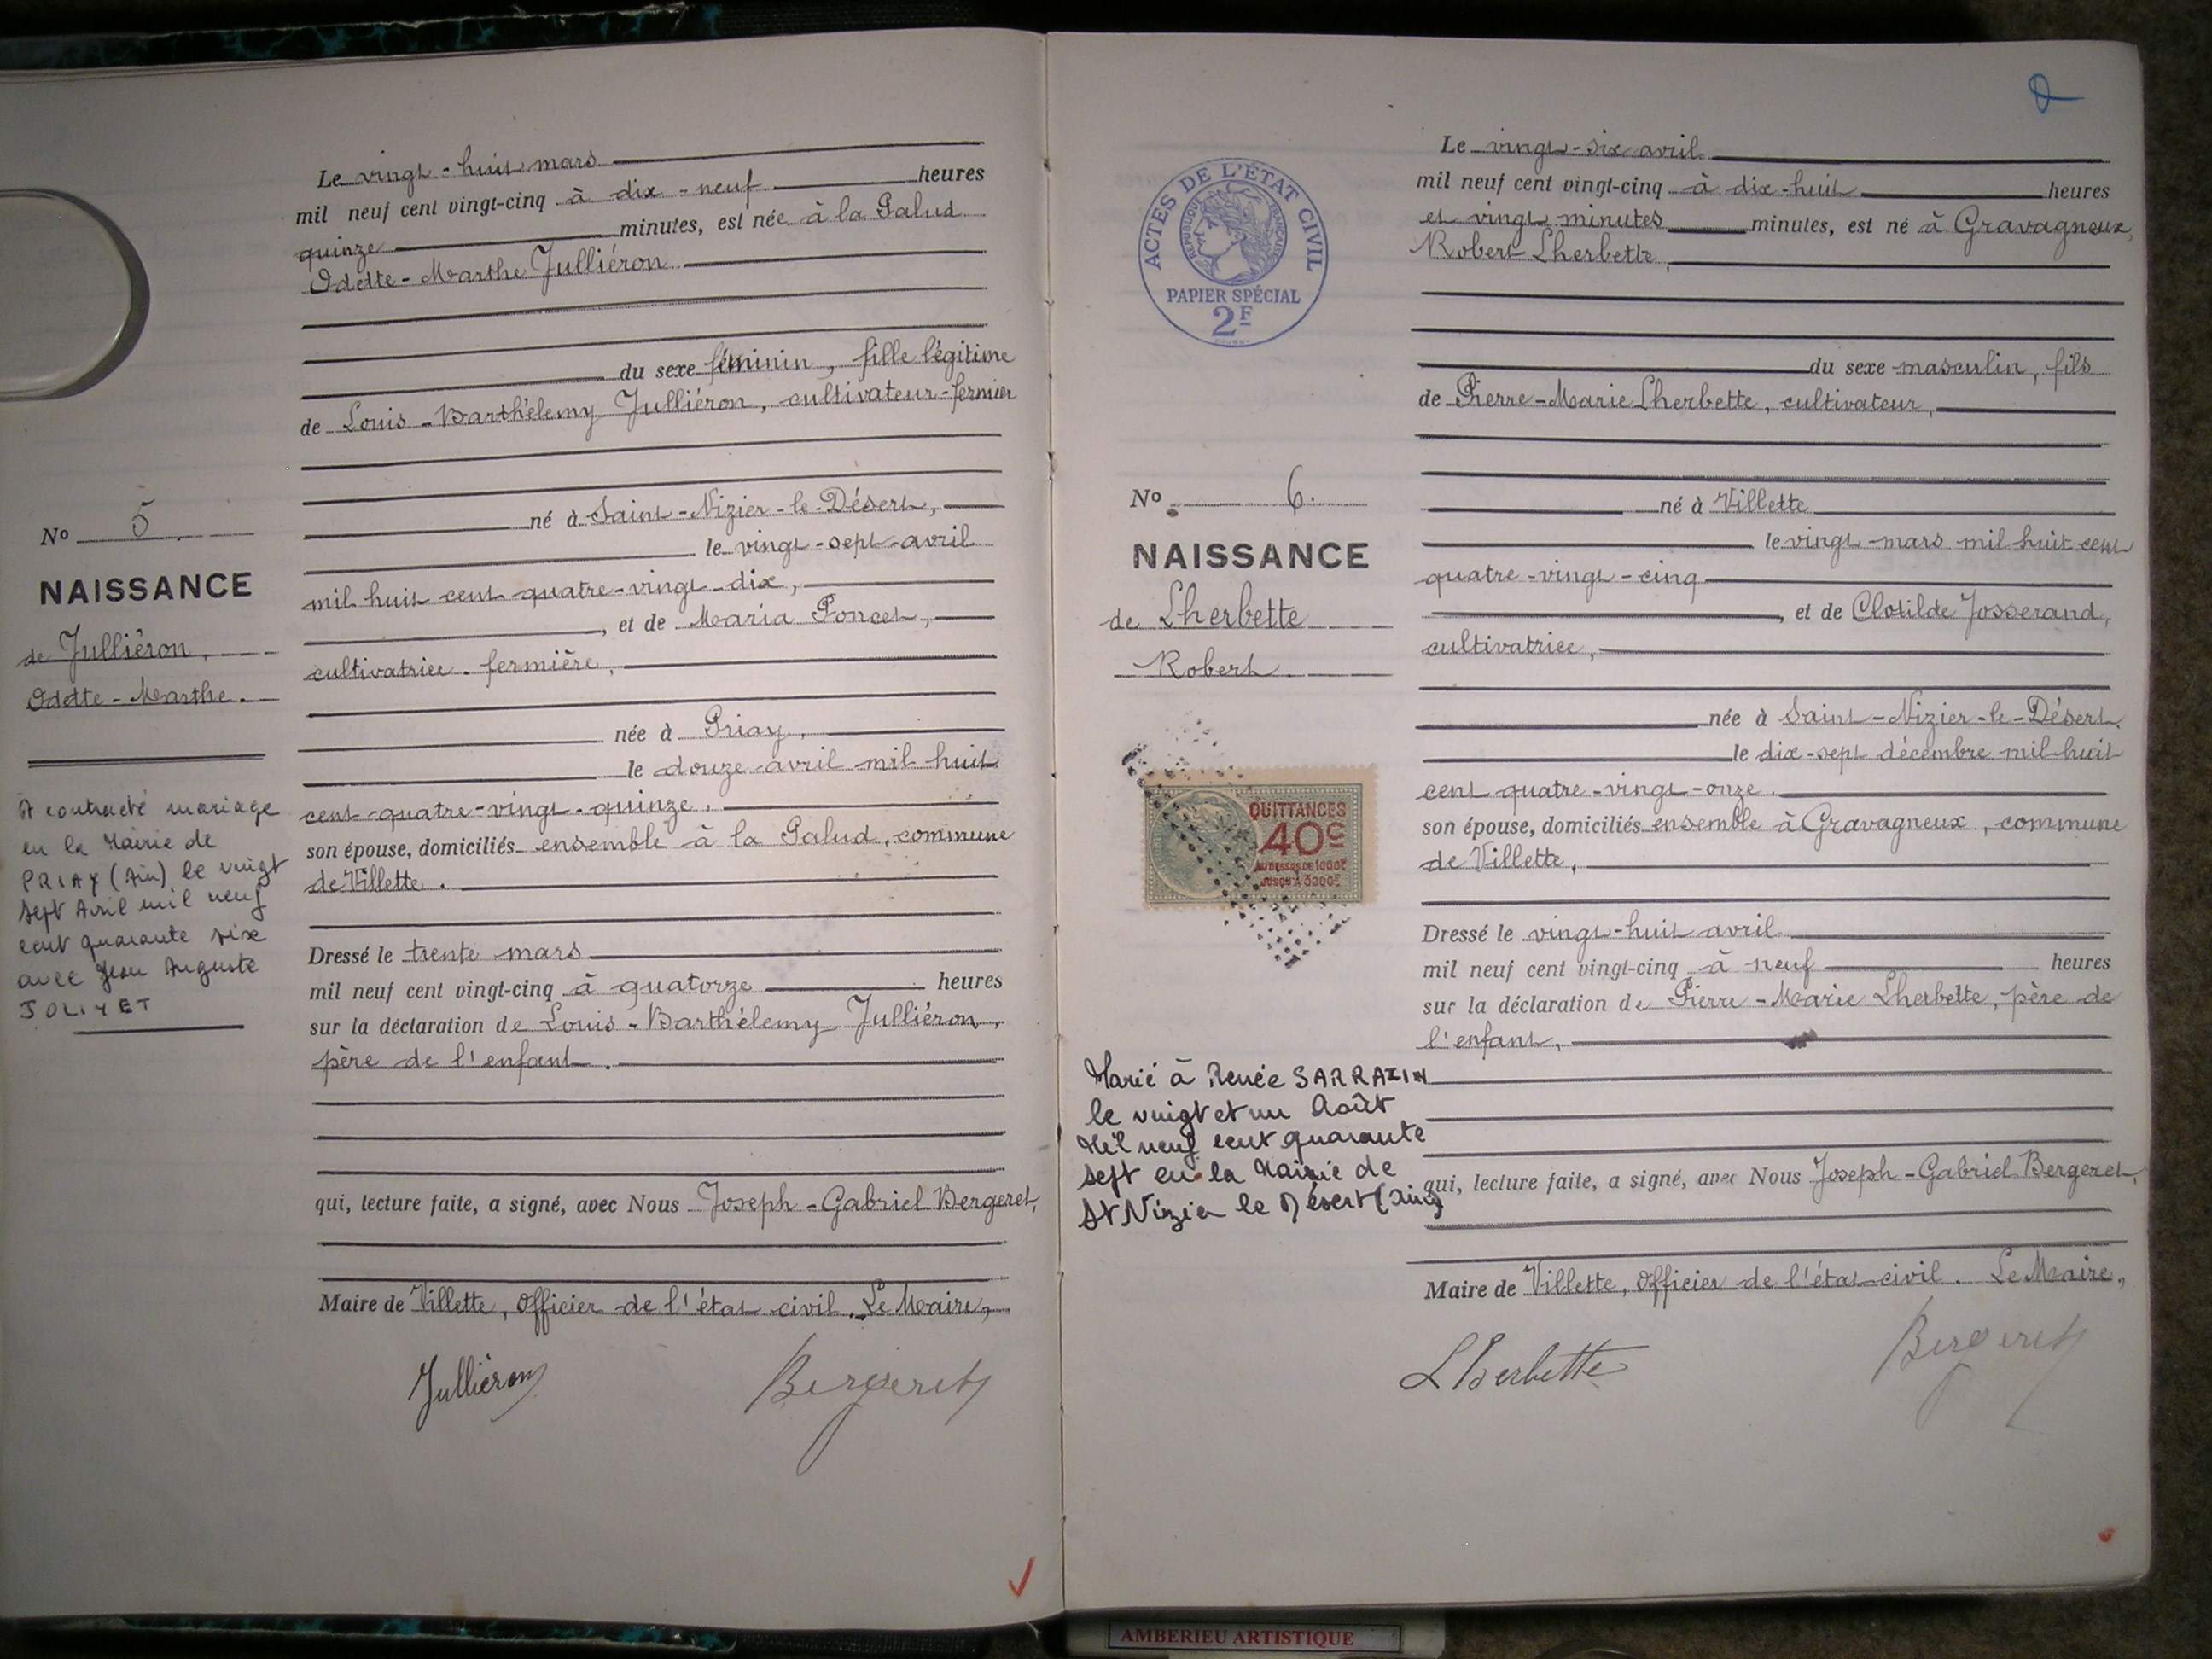 Le vingt-huit mars
mil neuf cent vingt-cinq à dix-neuf heures
quinze minutes, est née à la Palud
Odette-Marthe Julliéron
du sexe féminin, fille légitime
de Louis-Barthélemy Julliéron, cultivateur-fermier
né à Saint-Nizier-le-Désert,
le vingt-sept avril
mil huit cent quatre-vingt-dix,
, et de Maria Poncet,
cultivatrice-fermière,
née à Priay,
le douze avril mil huit
cent quatre-vingt-quinze,
son épouse, domiciliés ensemble à la Palud, commune
de Villette.
Dressé le trente mars
mil neuf cent vingt-cinq à quatorze heures
sur la déclaration de Louis-Barthélemy Julliéron,
père de l'enfant.
qui, lecture faite, a signé, avec Nous Joseph-Gabriel Bergeret,
Maire de Villette, Officier de l'état civil. Le Maire,
Julliéron Bergeret
No 5.
NAISSANCE
de Julliéron,
Odette-Marthe.
A contracté mariage
en la Mairie de
PRIAY (Ain) le vingt
sept Avril mil neuf
cent quarante six
avec Jean Auguste
JOLIVET
ACTES DE L'ÉTAT CIVIL
RÉPUBLIQUE FRANÇAISE
PAPIER SPÉCIAL
2F
No 6.
NAISSANCE
de Lherbette
Robert.
QUITTANCES
40c
AU DESSUS DE 1000F
JUSQU'A 3000F
Marié à Renée SARRAZIN
le vingt et un Août
Mil neuf cent quarante
sept en la Mairie de
St Nizier le Désert (Ain)
Le vingt-six avril
mil neuf cent vingt-cinq à dix-huit heures
et vingt minutes minutes, est né à Gravagneux,
Robert Lherbette,
du sexe masculin, fils
de Pierre-Marie Lherbette, cultivateur,
né à Villette
le vingt mars mil huit cent
quatre-vingt-cinq
, et de Clotilde Josserand,
cultivatrice,
née à Saint-Nizier-le-Désert
le dix-sept décembre mil huit
cent quatre-vingt-onze.
son épouse, domiciliés ensemble à Gravagneux, commune
de Villette,
Dressé le vingt-huit avril
mil neuf cent vingt-cinq à neuf heures
sur la déclaration de Pierre-Marie Lherbette, père de
l'enfant,
qui, lecture faite, a signé, avec Nous Joseph-Gabriel Bergeret,
Maire de Villette, Officier de l'état civil. Le Maire,
Lherbette Bergeret
AMBERIEU ARTISTIQUE